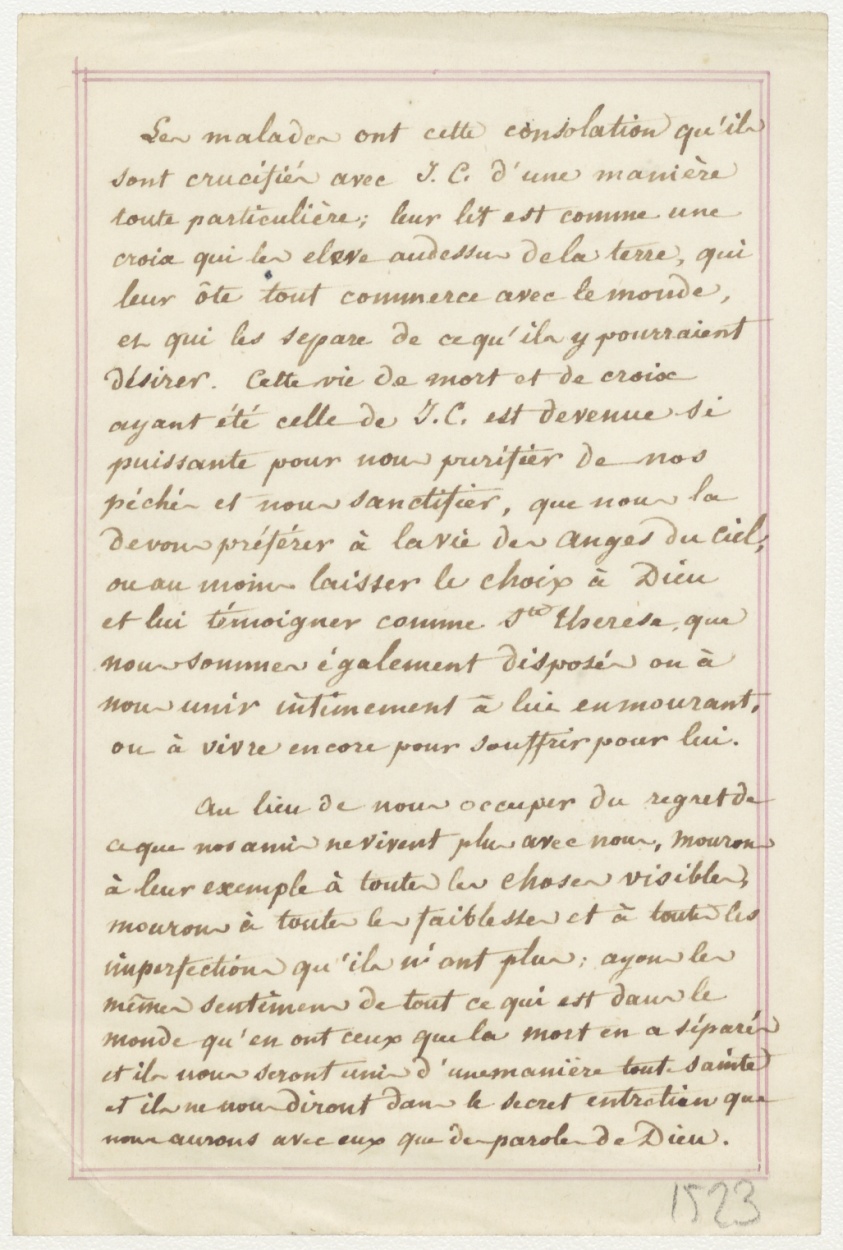 Les malades ont cette consolation qu'ils
sont crucifiés avec J. C. d'une manière
toute particulière; leur lit est comme une
croix qui les eleve audessus de la terre, qui
leur ôte tout commerce avec le monde,
et qui les separe de ce qu'ils y pourraient
désirer. Cette vie de mort et de croix
ayant été celle de J. C. est devenue si
puissante pour nous purifier de nos
péchés et nous sanctifier, que nous la
devons préférer à la vie des anges du ciel,
ou au moins laisser le choix à Dieu
et lui témoigner comme Ste Therese, que
nous sommes également disposés ou à
nous unir intimement à lui en mourant,
ou à vivre encore pour souffrir pour lui.
Au lieu de nous occuper du regret de
ce que nos amis ne vivent plus avec nous, mourons
à leur exemple à toutes les choses visibles,
mourons à toutes les faiblesses et à toutes les
imperfections qu'ils n'ont plus; ayons les
mêmes sentimens de tout ce qui est dans le
monde qu'en ont ceux que la mort en a séparés
et ils nous seront unis d'une manière toute sainte
et ils ne nous diront dans le secret entretien que
nous aurons avec eux que des paroles de Dieu.
1523